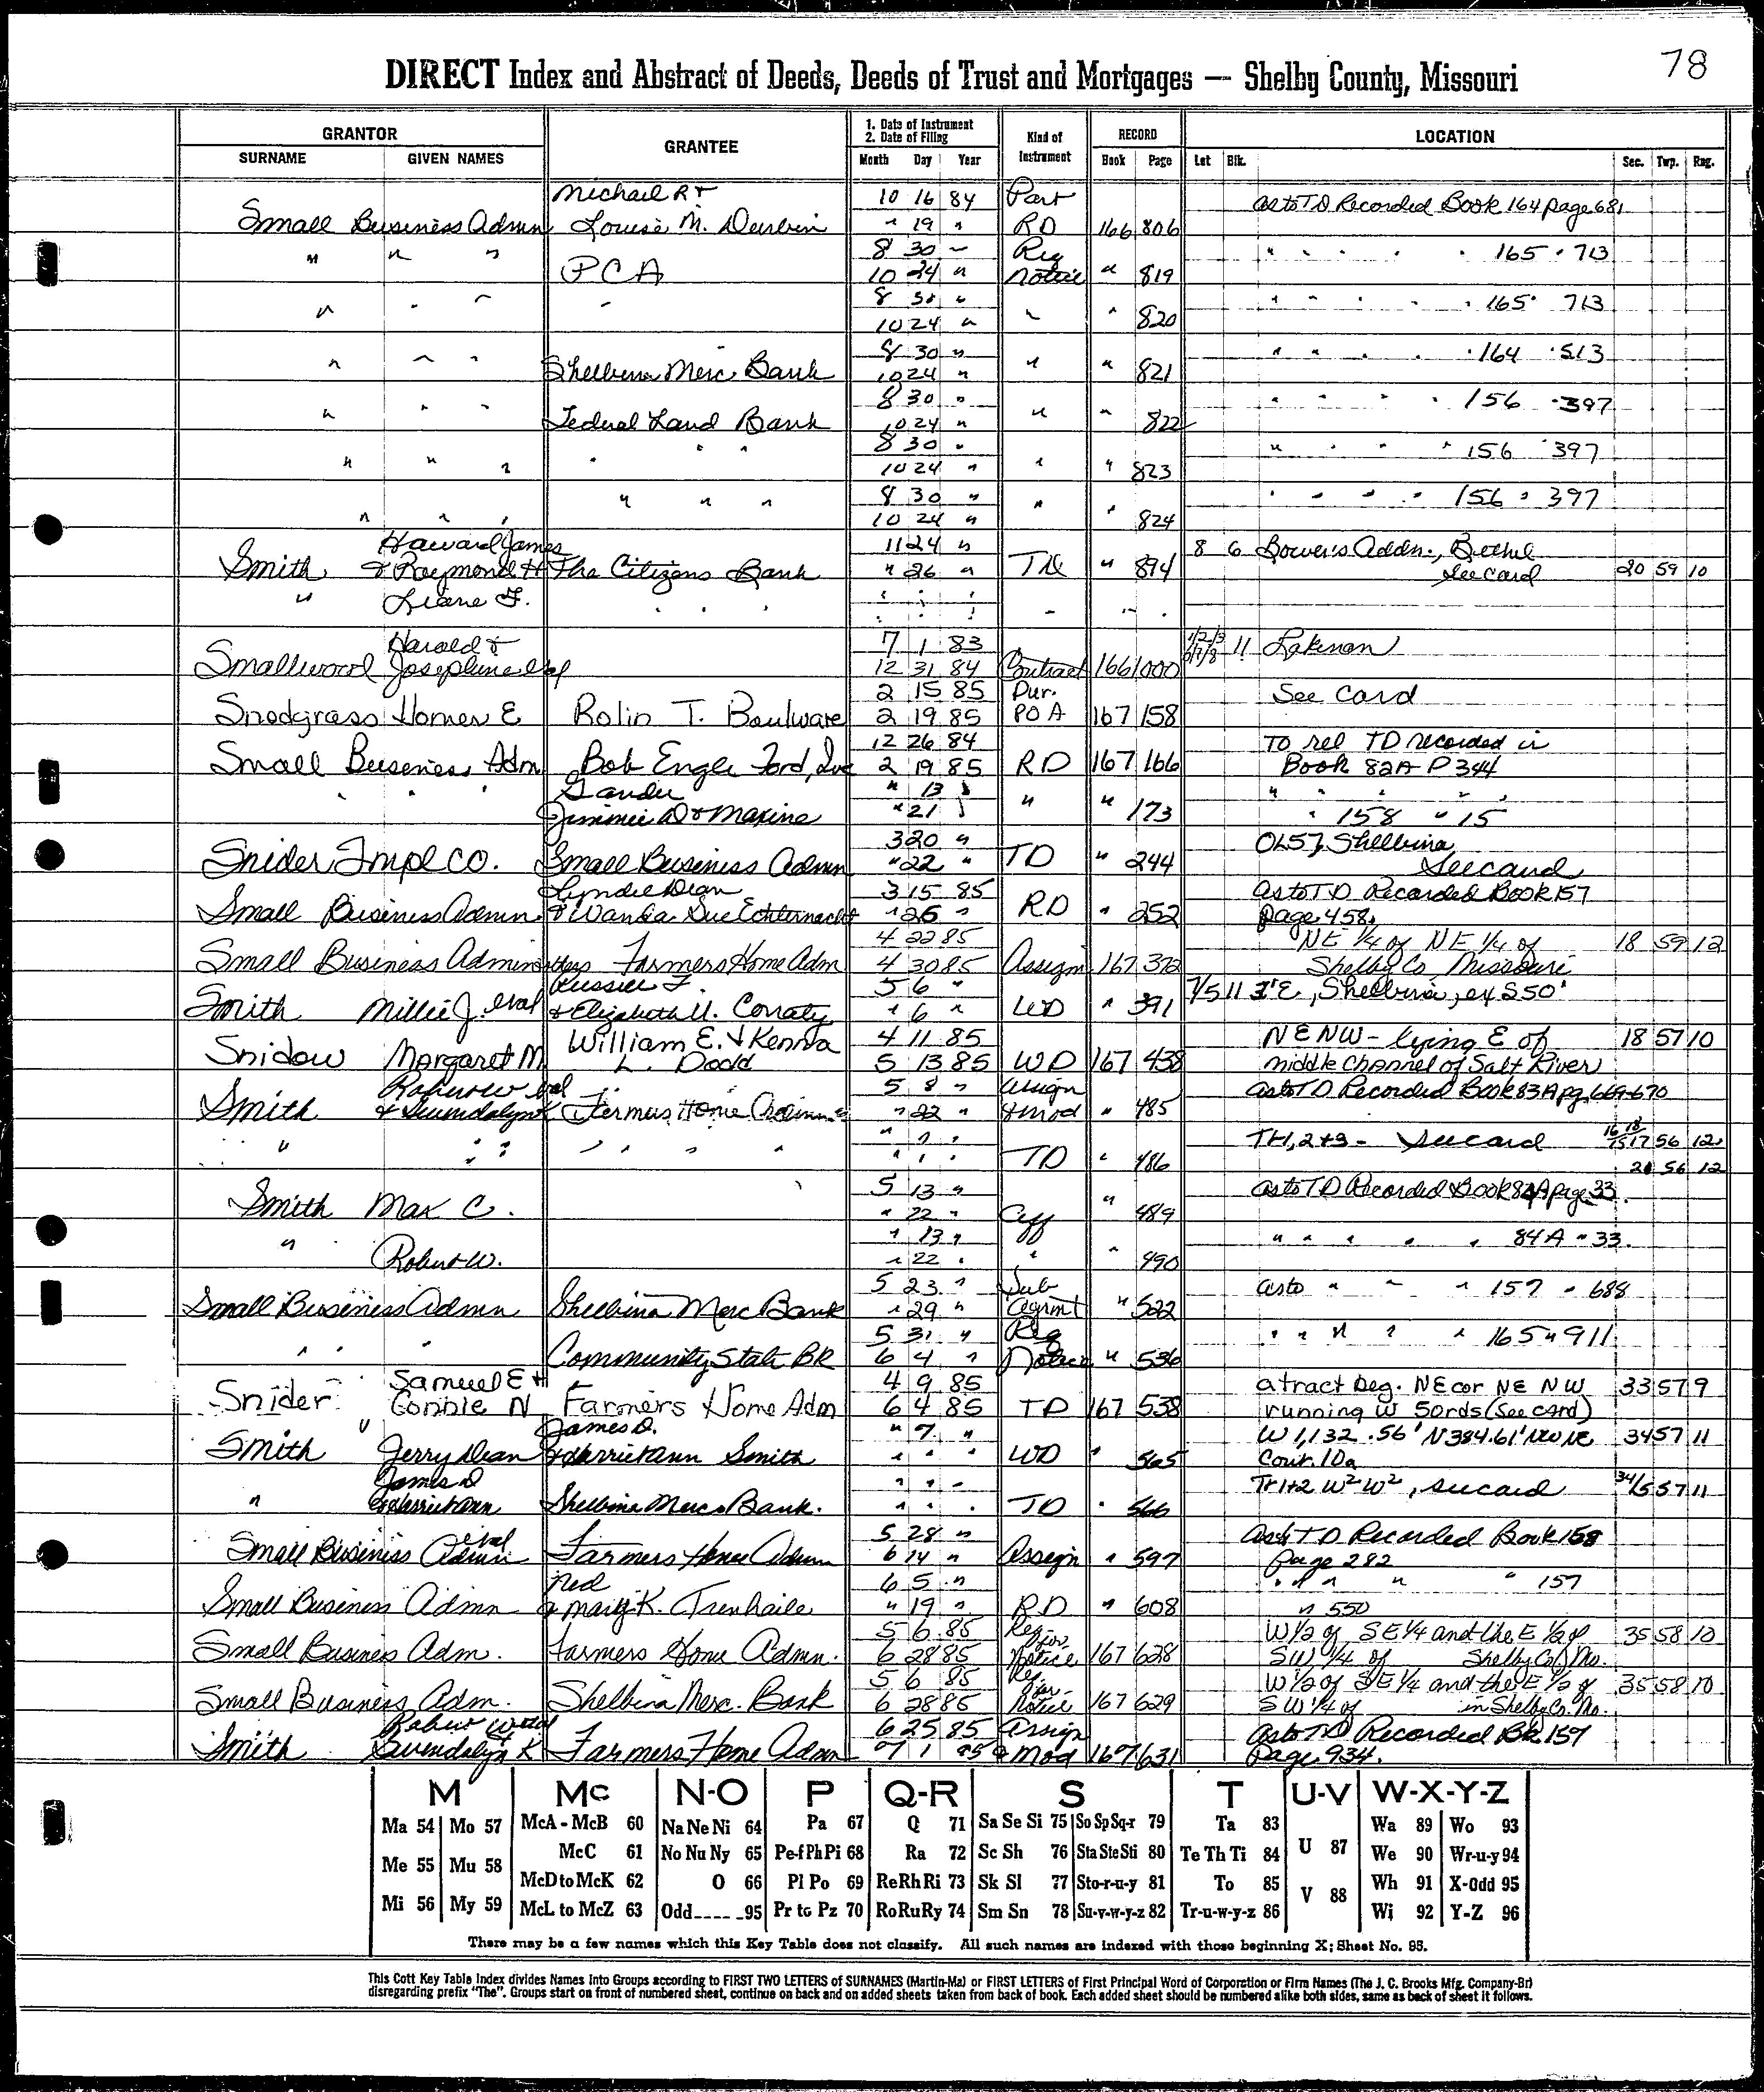 78
DIRECT Index and Abstract of Deeds, Deeds of Trust and Mortgages — Shelby County, Missouri
GRANTOR GRANTEE 1. Date of Instrument 2. Date of Filing Kind of Instrument RECORD LOCATION
SURNAME GIVEN NAMES Month Day Year Book Page Lot Blk. Sec. Twp. Rng.
Michael R + 10 16 84 Part as to TD Recorded Book 164 page 681
Small Business Admn Louise M. Durbin " 19 " RD 166 806
8 30 " Reg " " " " " 165 " 713
" " " PCA 10 24 " Notice " 819
8 30 " " " " " " 165 " 713
" " " " 10 24 " " " 820
8 30 " " " " " " 164 " 513
" " " Shelbina Merc. Bank 10 24 " " " 821
8 30 " " " " " " 156 " 397
" " " Federal Land Bank 10 24 " " " 822
8 30 " " " " " " 156 " 397
" " " " " " 10 24 " " " 823
8 30 " " " " " 156 " 397
" " " " " " 10 24 " " " 824
Howard James 11 24 " 8 6 Bower's Addn., Bethel
Smith & Raymond H The Citizens Bank " 26 " TD " 894 See card 20 59 10
" Diane F. " " " " " " " " "
Harold & 7 1 83 1/2/3 6/7/8 11 Lakenan
Smallwood Josephine etal 12 31 84 Contract 166 1000
2 15 85 Dur. See Card
Snodgrass Homer E Rolin T. Boulware 2 19 85 POA 167 158
12 26 84 To rel TD recorded in
Small Business Adm Bob Engle Ford, Inc 2 19 85 RD 167 166 Book 82A P 344
" " " Gander " 13 " " " " "
Jimmie D & Maxine " 21 " " " 173 " 158 " 15
3 20 " OL57, Shelbina
Snider Impl CO. Small Business Admn " 22 " TD " 244 See card
Lyndle Dean 3 15 85 as to TD Recorded Book 157
Small Business Admn. & Wanda Sue Echternacht " 26 " RD " 252 page 458.
4 22 85 NE 1/4 of NE 1/4 of 18 59 12
Small Business Admin Farmers Home Adm 4 30 85 Assign 167 372 Shelby Co Missouri
Russell F. 5 6 " 7/5 11 I'E, Shelbina, ex S50'
Smith Millie J. etal & Elizabeth U. Conaty " 6 " WD " 391
William E. & Kenna 4 11 85 NE NW - lying E of 18 57 10
Snidow Margaret M L. Dodd 5 13 85 WD 167 438 middle channel of Salt River
Robert W etal 5 8 " Assign as to TD Recorded Book 83A pg. 669-670
Smith & Gwendolyn K Farmers Home Admn " 22 " & mod " 485
" " " Tr 1, 2 + 3 - See card 16 18 15 17 56 12
" " " " " " " " " " TD " 486 21 56 12
5 13 " as to TD Recorded Book 84A page 33.
Smith Max C. " 22 " Aff " 489
" 13 " " " " " " 84A " 33.
" Robert W. " 22 " " " 490
5 23 " Sub as to " " " 157 " 688
Small Business Admn Shelbina Merc Bank " 29 " Agrmt " 522
5 31 " Reg " " " " " 165 " 911
" " " Community State BK 6 4 " Notice " 536
Samuel E + 4 9 85 a tract beg. NE cor NE NW 33 57 9
Snider Connie N Farmers Home Adm 6 4 85 TD 167 538 running W 50rds (See card)
James D. " 7 " W 1,132.56' N 384.61' NW NE 34 57 11
Smith Jerry Dean & Sherrie Ann Smith " " " WD " 565 Cont. 10a
James D " " " Tr 1+2 W² W², see card 34/5 57 11
" & Sherrie Ann Shelbina Merc. Bank. " " " TD " 566
etal 5 28 " As to TD Recorded Book 158
Small Business Admn Farmers Home Admn 6 14 " Assign " 597 page 282
Ned 6 5 " " " " " " 157
Small Business Admn & Mary K. Trenhaile " 19 " RD " 608 " 550
5 6 85 Reg for W 1/2 of SE 1/4 and the E 1/2 of 35 58 10
Small Business Adm. Farmers Home Admn. 6 28 85 Notice 167 628 SW 1/4 of Shelby Co. Mo.
5 6 85 Reg for W 1/2 of SE 1/4 and the E 1/2 of 35 58 10
Small Business Adm. Shelbina Merc. Bank 6 28 85 Notice 167 629 SW 1/4 of in Shelby Co. Mo.
Robert W etal 6 25 85 Assign As to TD Recorded Bk 157
Smith Gwendolyn K Farmers Home Admn 7 1 85 & Mod 167 631 Page 934.
M Mc N-O P Q-R S T U-V W-X-Y-Z
Ma 54 Mo 57 McA - McB 60 Na Ne Ni 64 Pa 67 Q 71 Sa Se Si 75 So Sp Sq-r 79 Ta 83 U 87 Wa 89 Wo 93
Me 55 Mu 58 McC 61 No Nu Ny 65 Pe-f Ph Pi 68 Ra 72 Sc Sh 76 Sta Ste Sti 80 Te Th Ti 84 We 90 Wr-u-y 94
McD to McK 62 O 66 Pl Po 69 Re Rh Ri 73 Sk Sl 77 Sto-r-u-y 81 To 85 V 88 Wh 91 X-Odd 95
Mi 56 My 59 McL to McZ 63 Odd---- -95 Pr to Pz 70 Ro Ru Ry 74 Sm Sn 78 Su-v-w-y-z 82 Tr-u-w-y-z 86 Wi 92 Y-Z 96
There may be a few names which this Key Table does not classify. All such names are indexed with those beginning X; Sheet No. 95.
This Cott Key Table Index divides Names Into Groups according to FIRST TWO LETTERS of SURNAMES (Martin-Ma) or FIRST LETTERS of First Principal Word of Corporation or Firm Names (The J. C. Brooks Mfg. Company-Br)
disregarding prefix "The". Groups start on front of numbered sheet, continue on back and on added sheets taken from back of book. Each added sheet should be numbered alike both sides, same as back of sheet it follows.